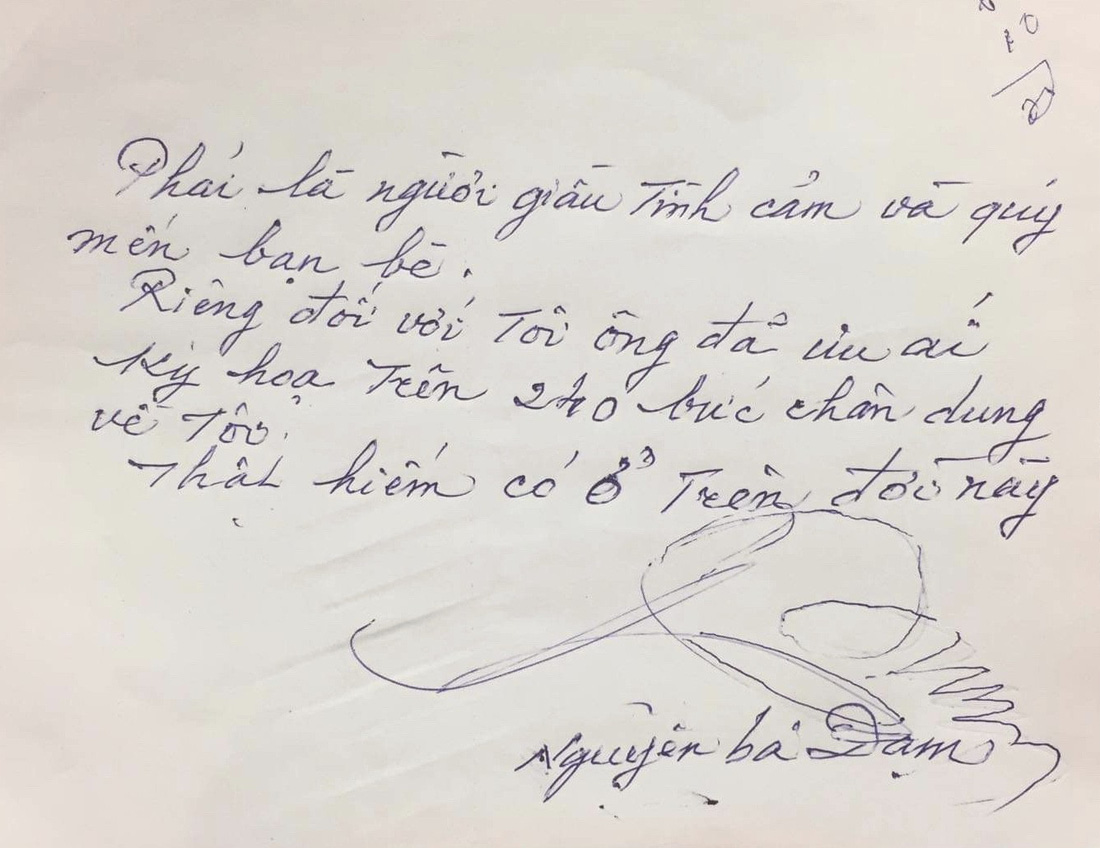 Phái là người giầu tình cảm và quý
mến bạn bè.
Riêng đối với tôi ông đã ưu ái
ký họa trên 240 bức chân dung
về tôi.
Thật hiếm có ở trên đời này
Nguyễn bá Đạm